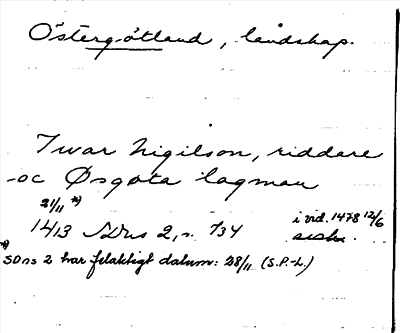 Östergötland, landskap.
Iwar Nigilson, riddare
oc Øsgøta lagman
21/11 *)
1413 SDns 2, n. 734 i vid. 1478 12/6
*) SDns 2 har felaktigt datum: 28/11 (S.P.-L.)